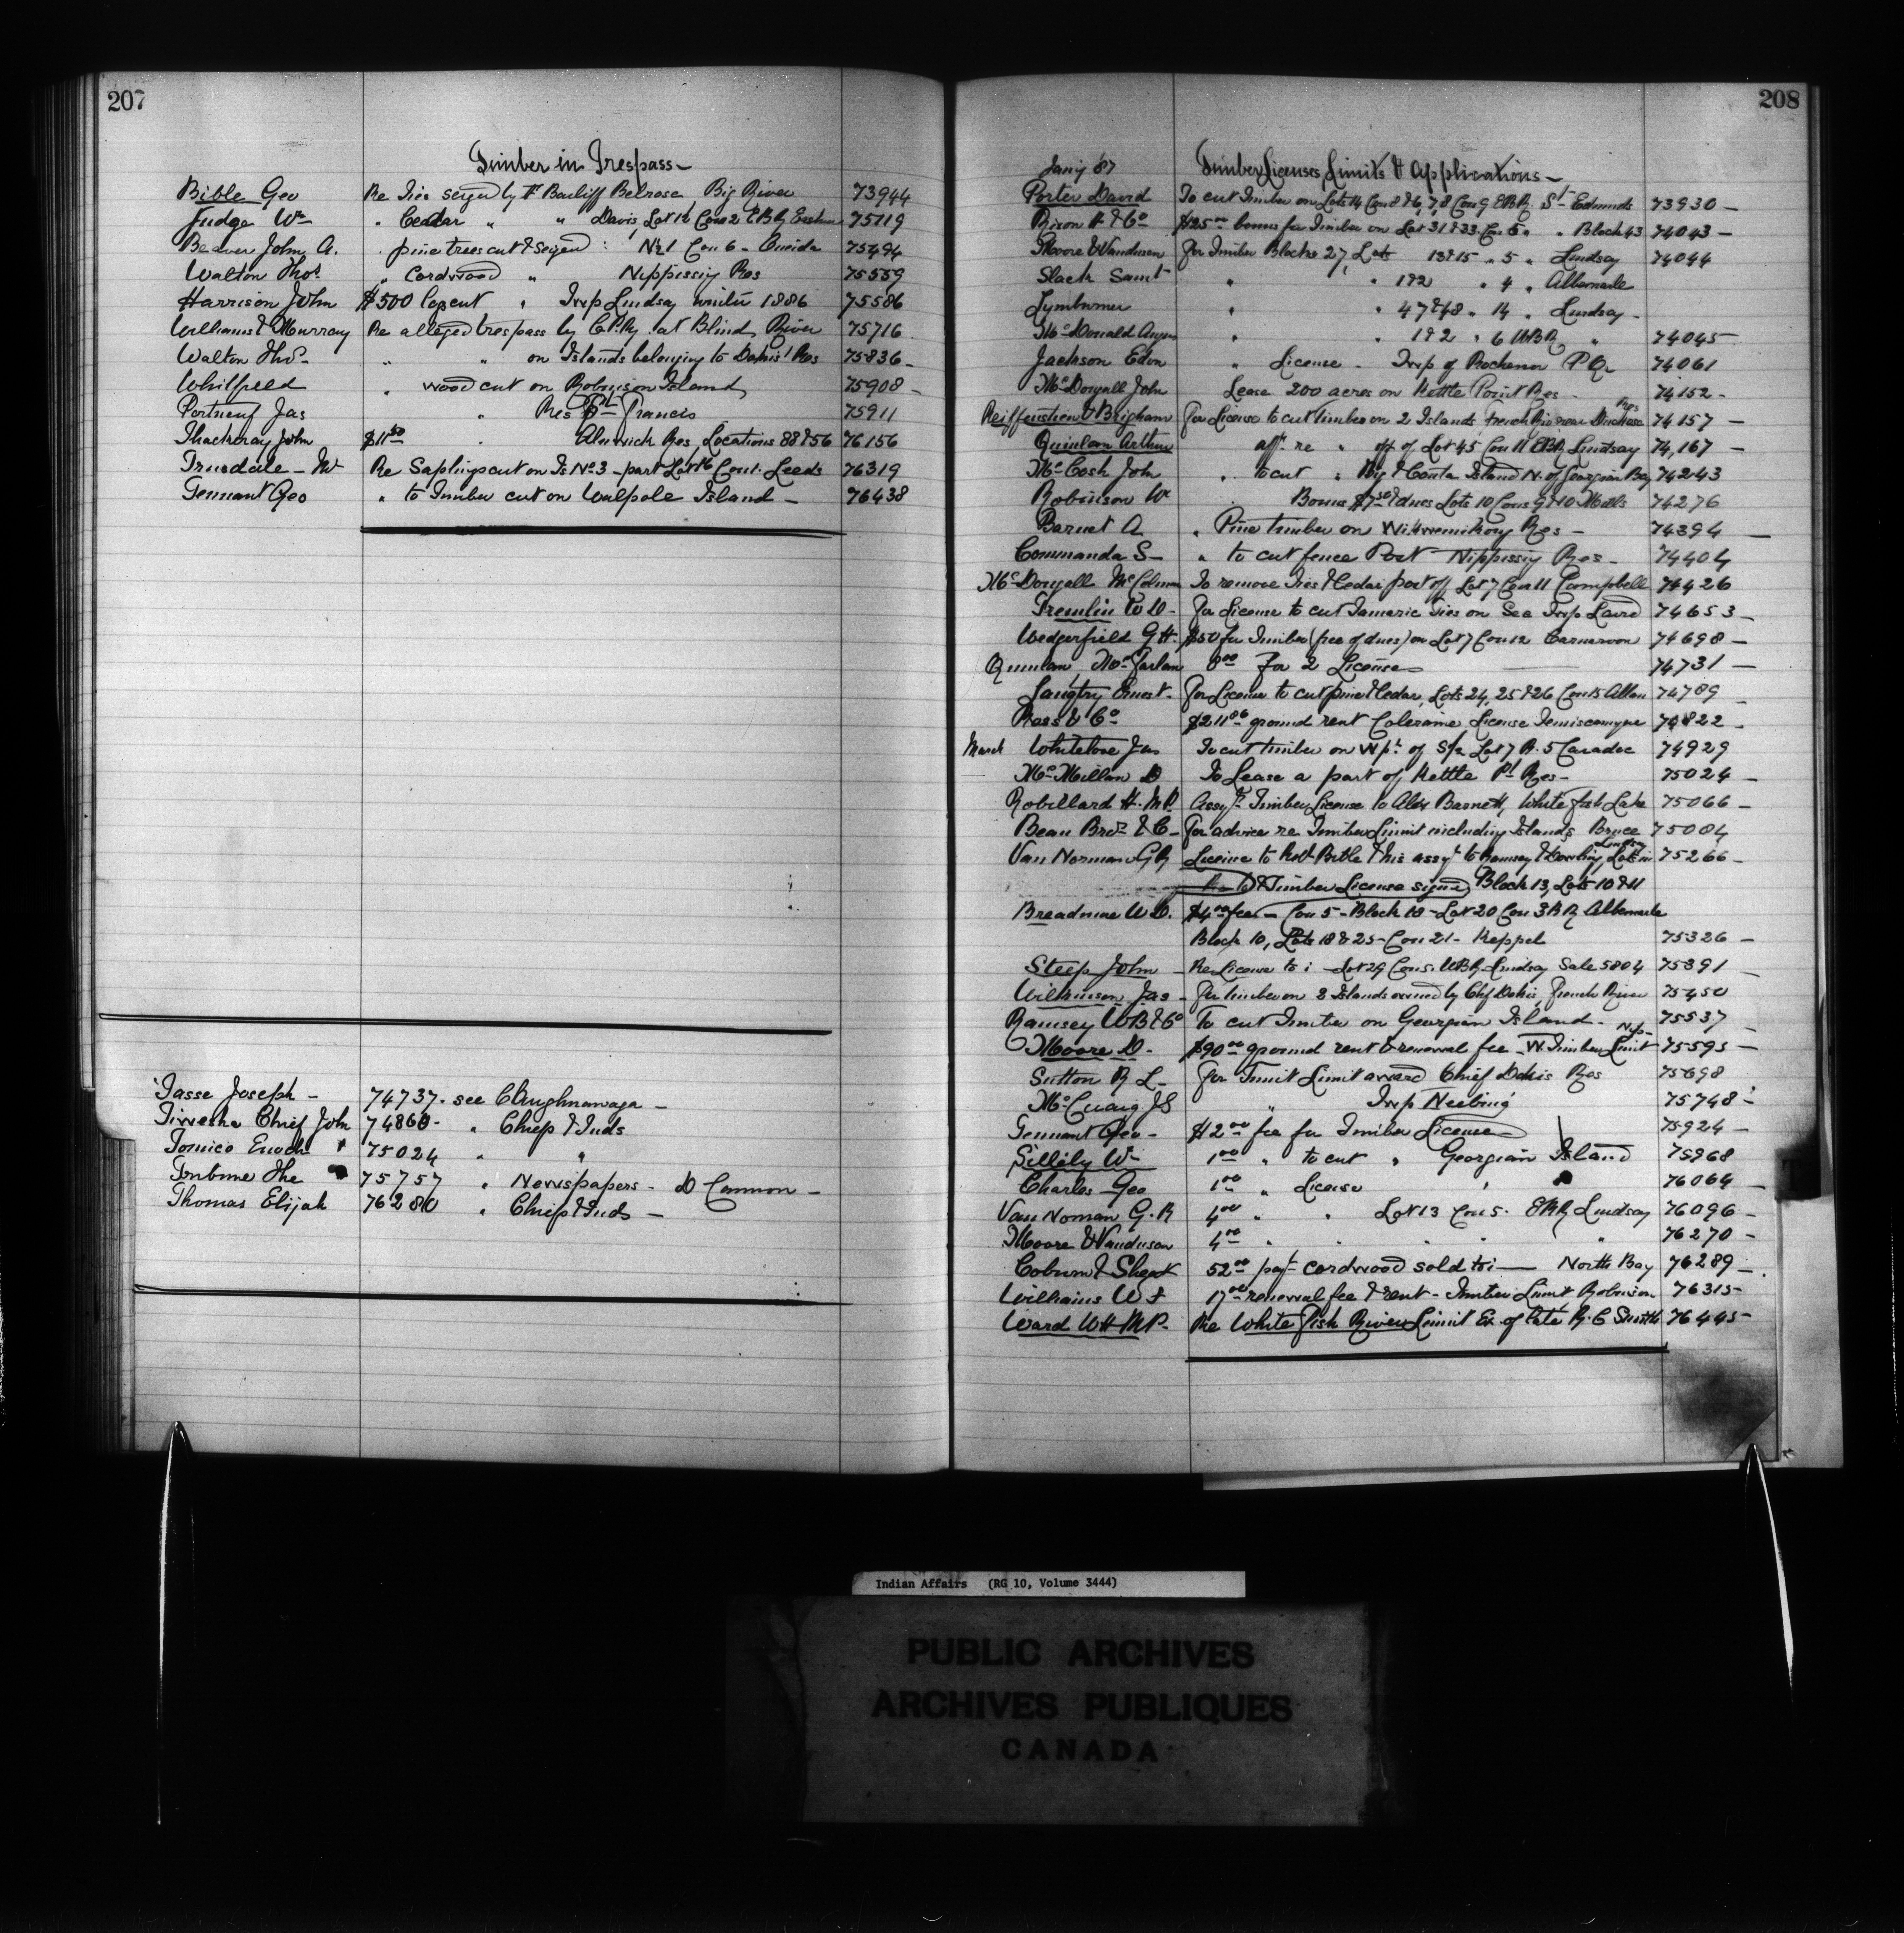 207
Timber in Trespass
Bible Geo Re Ties seized by Bailiff Belrose, Big River 73944
Judge Wm " Cedar " " Davis, Lot 16 Con 2 E B R 75119
Beaver John A. " pine trees cut & seized : No 1 Con 6 - Oneida 75494
Walton Thos " Cordwood " Nippissing Res 75559
Harrison John $500 " Twp Lindsay winter 1886 75586
Williams & Murray Re alleged trespass by C.P.Ry. at Blind River 75716
Walton Thos " " on Islands belonging to Dokis' Res 75836
Whitfield " wood cut on Robinson Island 75908
Portneuf Jas " Res St Francis 75911
Thackeray John $11 50 " Alnwick Res, Locations 88 & 56 76156
Trusdale - M Re Saplings cut on Is No 3 - part Lot 16 Con 1. Leeds 76319
Tennant Geo " to Timber cut on Walpole Island - 76438
Tasse Joseph - 74737. see Caughnawaga -
Chief John 74860 - " Chiefs & Inds
Tomico Enoch 75024 " "
Tribune The 75757 " Newspapers - D Cameron -
Thomas Elijah 76280 " Chiefs & Inds -
208
Jany 87 Timber Licenses, Limits & Applications -
Porter David To cut Timber on Lots 14 Con 8 & 6, 7, 8 Con 9 E B R. St Edmunds 73930 -
Rixon & Co $25 00 bonus for Timber on Lot 31 & 33 Con 5 " " Block 43 74043 -
Moore & Vandusen For Timber Blocks 27, Lots 13 & 15 " 5 " Lindsay 74044
Slack Saml " " 1 & 2 " 4 " Albemarle
Lymburner " " 47 & 48 " 14 " Lindsay -
McDonald Angus " " 1 & 2 " 6 W B R " 74045 -
Jackson Edm " License - Twp of P Q 74061
McDougall John Lease 200 acres on Kettle Point Res - 74152 -
Reiffenstien & Brigham For License to cut timber on 2 Islands French Riv near Duchesne Res 74157 -
Quinlan Arthur off. re " off of Lot 45 Con 11 E B R Lindsay 74,167 -
McCosh John " to cut " Big & Island N. of Georgian Bay 74243
Robinson W Bonus & dues Lots 10 Cons 9 & 10 Mills 74276
Barnet A " Pine timber on Wikwemikong Res - 74394 -
Commanda S - " to cut fence Post Nippissing Res - 74404
McDougall McColman To remove Ties & Cedar post off Lot 7 Con 11 Campbell 74426
Tremlin W D - For License to cut Tamaric Ties on Sec Twp Laird 74653 -
Wedgerfield G H. $50 for Timber (free of dues) on Lot 7 Con 12 Carnarvon 74698 -
Quinlan McFarlan 8 00 for 2 Licenses 74731 -
Langtry Ernest - For License to cut pine & Cedar, Lots 24, 25 & 26 Con 5 Allan 74789 -
Ross & Co $211 86 ground rent Coleraine License Temiscamgue 74822 -
March Whitelove Jas To cut timber on W pt of S/2 Lot 7 R. 5 Caradoc 74929
McMillan D To Lease a part of Kettle Pt Res - 75024 -
Robillard H. M.P. Assgt Timber License to Alex Barnett, White fish Lake 75066 -
Bean Bros & C - For advice re Timber Limit including Islands Bruce 75084
Van Norman G R License to Robt Bible & his assgt to Ramsey & Dowling Lots in Lindsay 75266 -
& Timber License signed Block 13, Lots 10 & 11
Breadmore W D. $4 00 fee - Con 5 - Block 18 - Lot 20 Con 3 B R Albemarle
Block 10, Lots 18 & 25 - Con 21 - Keppel 75326 -
Steep John - Re License to : - Lot 29 Con 5. W B R Lindsay Sale 5804 75391 -
Wilkinson Jas - For timber on 2 Islands owned by Chf Dokis, French River 75450
Ramsey W B & Co To cut Timber on Georgian Island - 75537 -
Moore D - $90 00 ground rent & renewal fee - W. Timber Limit Nip - 75595 -
Sutton R L - For Timit Limit Chief Dokis Res 75698
McCuaig J S " Twp Neebing 75748 -
Tennant Geo - $12 00 fee for Timber License 75924 -
Sillily Wm 1 00 " to cut " Georgian Island 75968
Charles Geo 1 00 " License " 76064 -
Van Noman G. R 4 00 " " Lot 13 Con 5. E B R Lindsay 76096 -
Moore & Vandusen 4 00 " " " " " 76270 -
Coburn & 52 00 payt cordwood sold to : - North Bay 76289 -
Williams W J 17 00 renewal fee & rent - Timber Limit Robinson 76315 -
Ward W H M.P. Re White Fish River Limit Ex. of late R. C Smith 76445 -
Indian Affairs (RG 10, Volume 3444)
PUBLIC ARCHIVES
ARCHIVES PUBLIQUES
CANADA